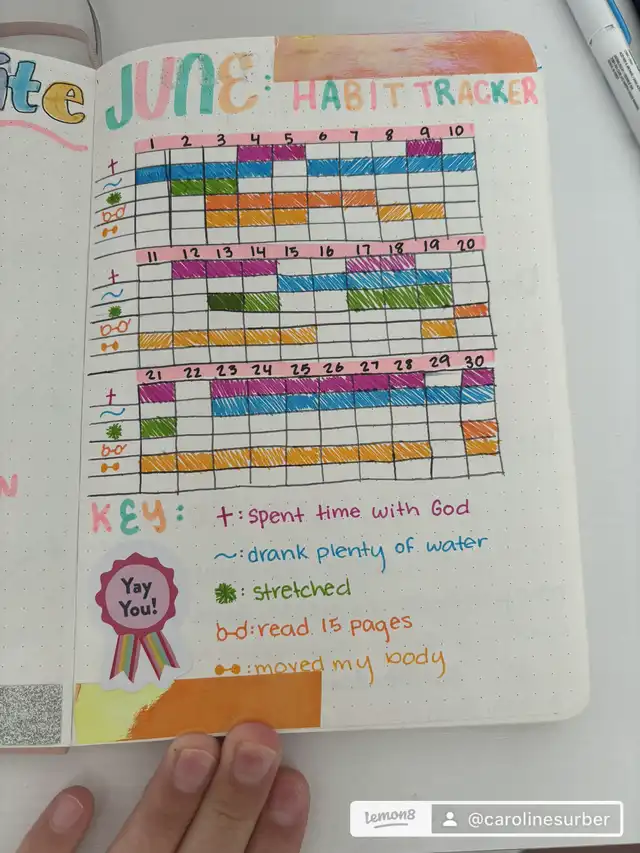 ite
JUNE:
HABIT TRACKER
1 2 3 4 5 6 7 8 9 10
11 12 13 14 15 16 17 18 19 20
21 22 23 24 25 26 27 28 29 30
N
KEY:
†: spent time with God
~: drank plenty of water
: stretched
: read 15 pages
: moved my body
Yay
You!
lemon8 @carolinesurber